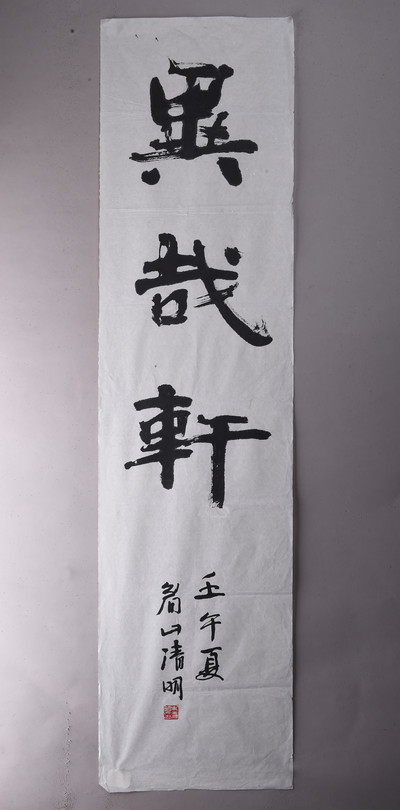 異哉軒
壬午夏
眉山清明